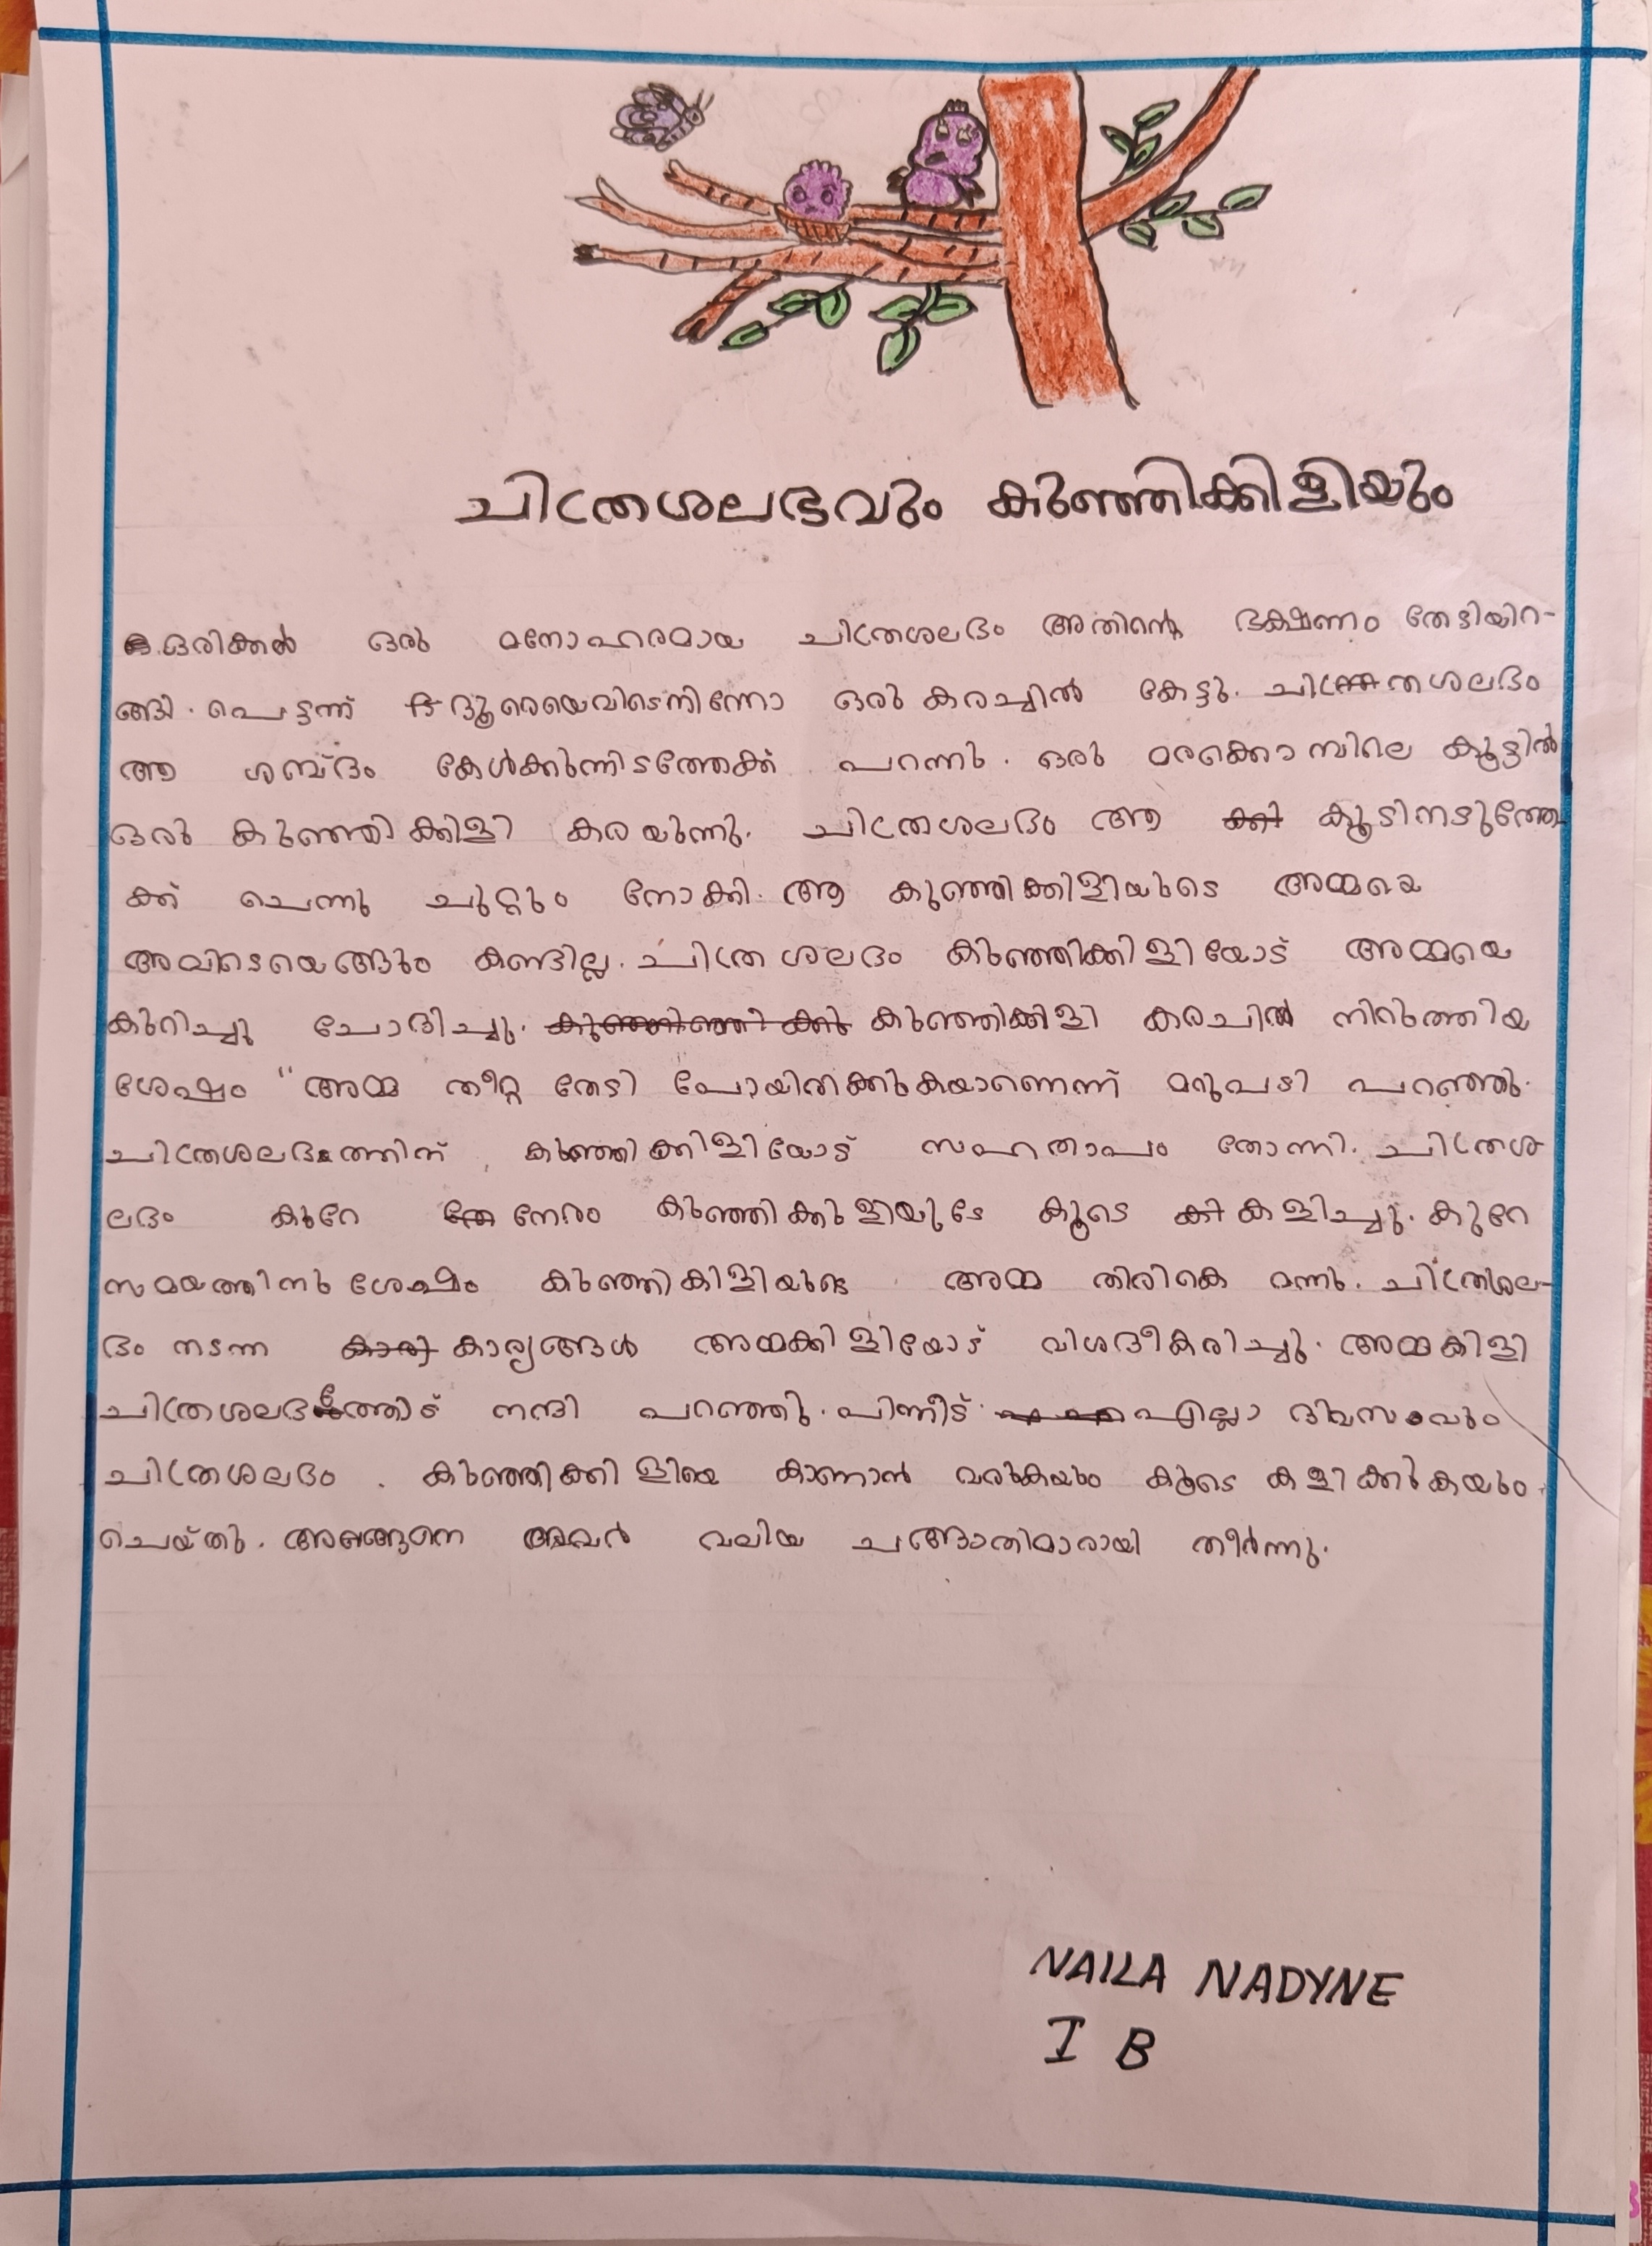 ചിത്രശലഭവും കുഞ്ഞിക്കിളിയും
ഒരിക്കൽ ഒരു മനോഹരമായ ചിത്രശലഭം അതിന്റെ ഭക്ഷണം തേടിയിറ-
ങ്ങി. പെട്ടന്ന് ദൂരെയെവിടെനിന്നോ ഒരു കരച്ചിൽ കേട്ടു. ചിത്രശലഭം
ആ ശബ്ദം കേൾക്കുന്നിടത്തേക്ക് പറന്നു. ഒരു മരക്കൊമ്പിലെ കൂട്ടിൽ
ഒരു കുഞ്ഞിക്കിളി കരയുന്നു. ചിത്രശലഭം ആ കൂടിനടുത്തേ
ക്ക് ചെന്നു ചുറ്റും നോക്കി. ആ കുഞ്ഞിക്കിളിയുടെ അമ്മയെ
അവിടെയെങ്ങും കണ്ടില്ല. ചിത്രശലഭം കുഞ്ഞിക്കിളിയോട് അമ്മയെ
കുറിച്ചു ചോദിച്ചു. കുഞ്ഞിക്കിളി കരചിൽ നിറുത്തിയ
ശേഷം "അമ്മ തീറ്റ തേടി പോയിരിക്കുകയാണെന്ന് മറുപടി പറഞ്ഞു.
ചിത്രശലഭത്തിന് കുഞ്ഞിക്കിളിയോട് സഹതാപം തോന്നി. ചിത്രശ
ലഭം കുറേ നേരം കുഞ്ഞിക്കുളിയുടേ കൂടെ കളിച്ചു. കുറേ
സമയത്തിനു ശേഷം കുഞ്ഞികിളിയുടെ അമ്മ തിരികെ വന്നു. ചിത്രശല-
ഭം നടന്ന കാര്യങ്ങൾ അമ്മക്കിളിയോട് വിശദീകരിച്ചു. അമ്മകിളി
ചിത്രശലഭത്തോട് നന്ദി പറഞ്ഞു. പിന്നീട് എല്ലാ ദിവസവും
ചിത്രശലഭം കുഞ്ഞിക്കിളിയെ കാണാൻ വരുകയും കൂടെ കളിക്കുകയും
ചെയ്തു. അങ്ങനെ അവർ വലിയ ചങ്ങാതിമാരായി തീർന്നു.
NAILA NADYNE
I B